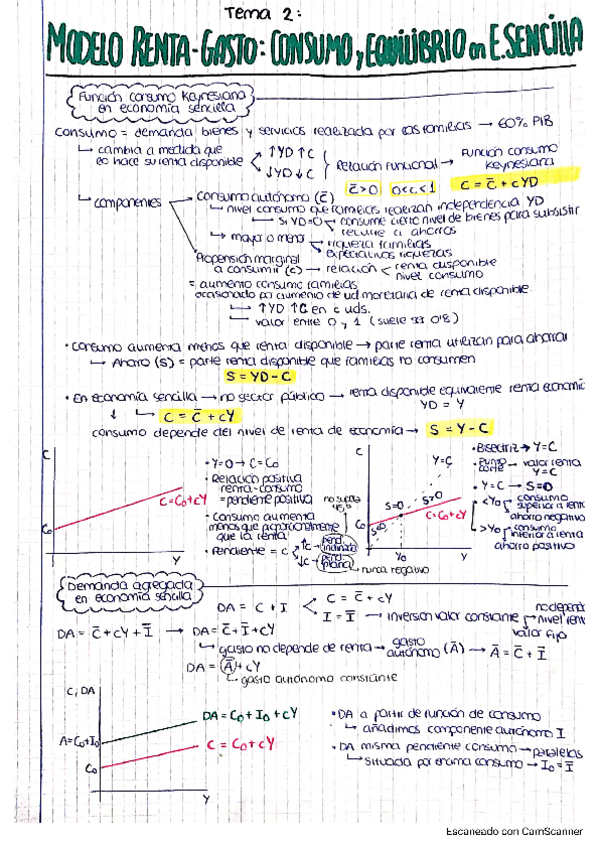 Tema 2:
MODELO RENTA-GASTO: CONSUMO y EQUILIBRIO en E. SENCILLA
Función consumo Keynesiana
en economía sencilla
Consumo = demanda bienes y servicios realizada por las familias → 60% PIB
↳ cambia a medida que lo hace su renta disponible
↑YD ↑C
↓YD ↓C
Relación funcional → Función consumo Keynesiana
C̄>0 0<c<1 C = C̄ + cYD
↳ componentes
Consumo autónomo (C̄)
↳ nivel consumo que familias realizan independencia YD
↳ Si YD=0 consume cierto nivel de bienes para subsistir
recurre a ahorros
↳ mayor o menor riqueza familias
expectativas riquezas
Propensión marginal
a consumir (c) → relación < renta disponible
nivel consumo
= aumento consumo familias
ocasionado por aumento de ud monetaria de renta disponible
↳ ↑YD ↑C en c uds.
↳ valor entre 0 y 1 (suele ser 0'8)
• Consumo aumenta menos que renta disponible → parte renta utilizan para ahorrar
↳ Ahorro (S) = parte renta disponible que familias no consumen
S = YD - C
• En economía sencilla → no sector público → renta disponible equivalente renta economía
YD = Y
↳ C = C̄ + cY
consumo depende del nivel de renta de economía → S = Y - C
C
C=C₀+cY
C₀
Y
• Y=0 → C=C₀
• Relación positiva
renta-consumo
=pendiente positiva
• Consumo aumenta
menos que proporcionalmente
que la renta
• Pendiente = c
↑c → pend. inclinada
↓c → pend. plana
nunca negativo
no supera 45°
C
Y=C
S=0
S>0
S<0
C=C₀+cY
C₀
Y₀
Y
• Bisectriz → Y=C
• Punto corte → valor renta
Y=C
• Y=C → S=0
<Y₀ consumo
superior a renta
ahorro negativo
>Y₀ consumo
inferior a renta
ahorro positivo
Demanda agregada
en economía sencilla
DA = C + I
C = C̄ + cY
I = Ī → inversión valor constante
nivel
valor fijo
DA = C̄ + cY + Ī → DA = C̄ + Ī + cY
↳ gasto no depende de renta → gasto autónomo (Ā) → Ā = C̄ + Ī
DA = (Ā) + cY
↳ gasto autónomo constante
C, DA
DA = C₀ + I₀ + cY
A=C₀+I₀
C = C₀ + cY
C₀
Y
• DA a partir de función de consumo
↳ añadimos componente autónomo I
• DA misma pendiente consumo → paralelas
↳ Situada por encima consumo → I₀ = Ī
Escaneado con CamScanner